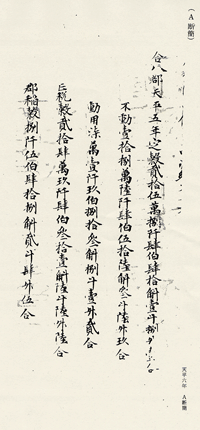 （A断簡）
合八郡天平五年定穀貳拾伍萬捌仟肆伯肆拾捌斛壹斗捌升
不動壹拾捌萬陸仟肆伯伍拾陸斛參斗陸升玖合
動用柒萬壹仟玖伯捌拾參斛捌斗壹升貳合
正税穀貳拾肆萬玖仟肆伯參拾壹斛陸斗陸升陸合
郡稻穀捌仟伍伯肆拾捌斛貳斗肆升伍合
天平六年　A断簡